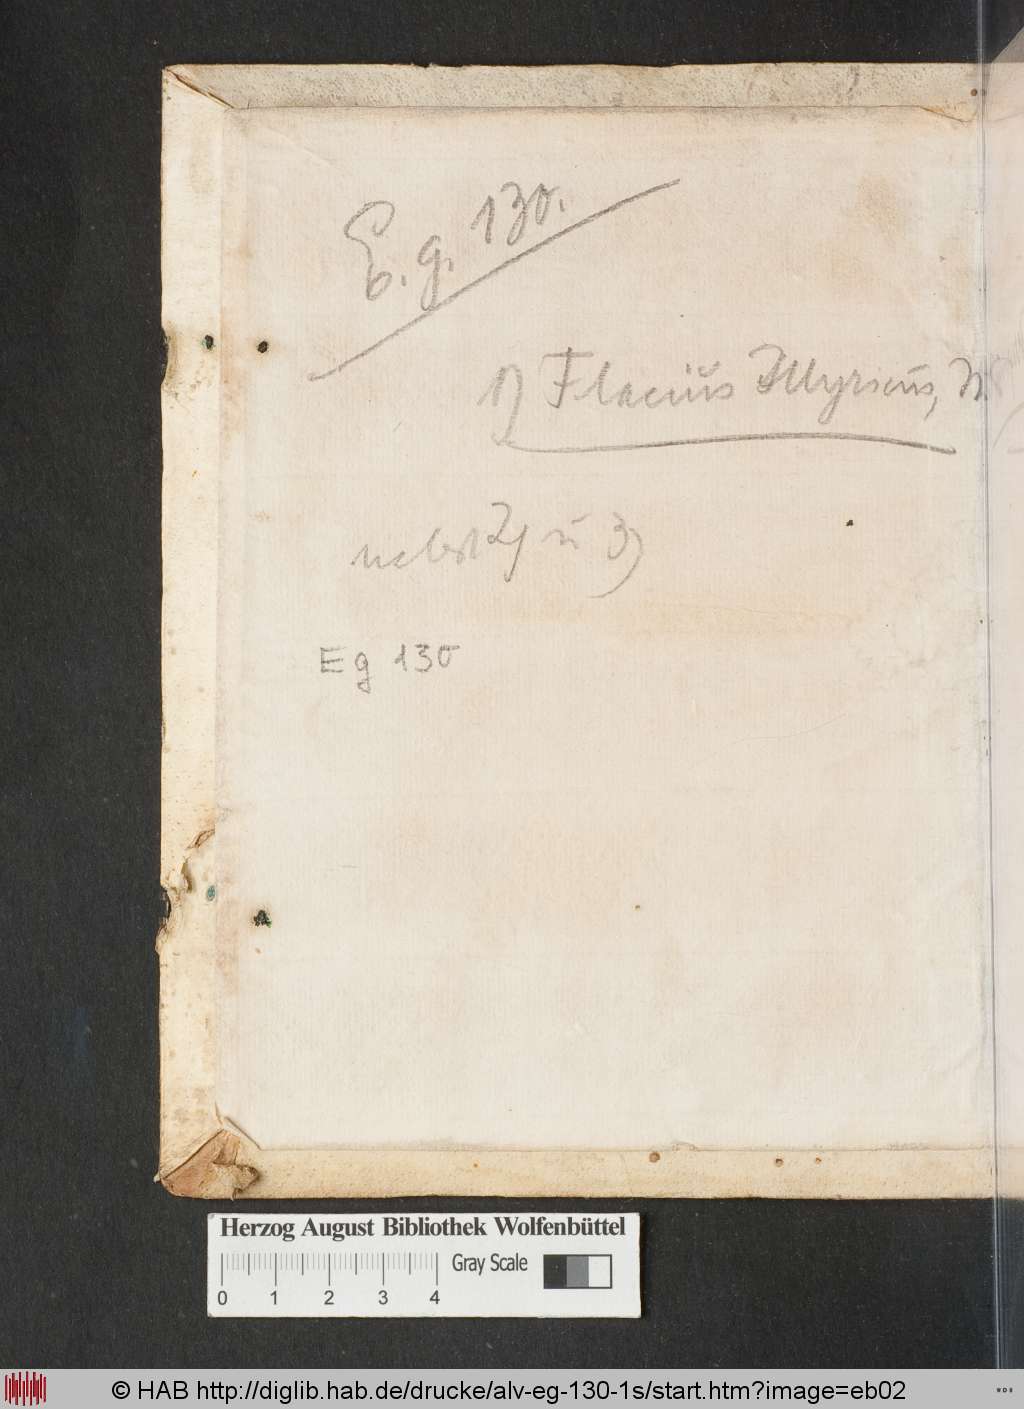 E. g. 130.
1) Flacius Illyricus, M
nebst 2) u 3)
Eg 130
Herzog August Bibliothek Wolfenbüttel
Gray Scale
0 1 2 3 4
© HAB http://diglib.hab.de/drucke/alv-eg-130-1s/start.htm?image=eb02